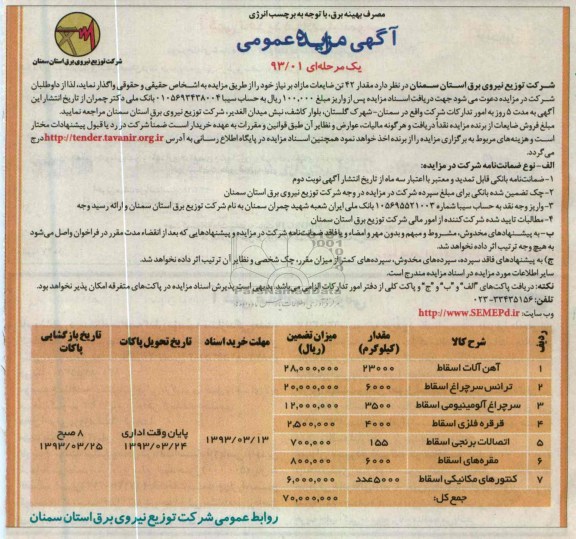 مصرف بهینه برق، با توجه به برچسب انرژی
آگهی مزایده عمومی
یک مرحله‌ای ۹۳/۰۱
شرکت توزیع نیروی برق استان سمنان
شرکت توزیع نیروی برق استان سمنان در نظر دارد مقدار ۴۲ تن ضایعات مازاد بر نیاز خود را از طریق مزایده به اشخاص حقیقی و حقوقی واگذار نماید، لذا از داوطلبان
شرکت در مزایده دعوت می شود جهت دریافت اسناد مزایده پس از واریز مبلغ ۱۰۰,۰۰۰ ریال به حساب سیبا ۱۰۵۶۹۲۴۳۸۰۰۴ بانک ملی دکتر چمران از تاریخ انتشار این
آگهی به مدت ۵ روز به امور تدارکات شرکت واقع در سمنان-شهرک گلستان، بلوار کاشف، نبش میدان الغدیر، شرکت توزیع نیروی برق استان سمنان مراجعه نمایید.
مبلغ فروش ضایعات از برنده مزایده نقداً دریافت و هرگونه مالیات، عوارض و نظایر آن طبق قوانین و مقررات به عهده خریدار است ضمنا شرکت در رد یا قبول پیشنهادات مختار
است و هزینه‌های مربوط به برگزاری مزایده را از برنده اخذ خواهد نمود همچنین اسناد مزایده در پایگاه اطلاع رسانی به آدرس http://tender.tavanir.org.ir درج
می‌گردد.
الف- نوع ضمانت‌نامه شرکت در مزایده:
۱-ضمانت‌نامه بانکی قابل تمدید و معتبر با اعتبار سه ماه از تاریخ انتشار آگهی نوبت دوم
۲-چک تضمین شده بانکی برای مبلغ سپرده شرکت در مزایده در وجه شرکت توزیع نیروی برق استان سمنان
۳-واریز وجه نقد به حساب سیبا شماره ۰۱۰۵۶۹۵۵۲۱۰۰۳ بانک ملی ایران شعبه شهید چمران سمنان به نام شرکت توزیع برق استان سمنان و ارائه رسید وجه
۴-مطالبات تایید شده شرکت‌کننده از امور مالی شرکت توزیع برق استان سمنان
ب- به پیشنهادهای مخدوش، مشروط و مبهم و بدون مهر و امضاء و یا فاقد ضمانت‌نامه شرکت در مزایده و پیشنهادهایی که بعد از انقضاء مدت مقرر در فراخوان واصل می‌شود
به هیچ وجه ترتیب اثر داده نخواهد شد.
ج) به پیشنهادهای فاقد سپرده، سپرده‌های مخدوش، سپرده‌های کمتر از میزان مقرر، چک شخصی و نظایر آن ترتیب اثر داده نخواهد شد.
سایر اطلاعات مورد مزایده در اسناد مزایده مندرج است.
نکته: دریافت پاکت‌های "الف" و "ب" و "ج" و پاکت کلی از دفتر امور تدارکات الزامی می‌باشد. بدیهی است پذیرش اسناد مزایده در پاکت‌های متفرقه امکان پذیر نخواهد بود.
تلفن: ۳۳۴۳۵۱۵۶-۰۲۳
وب سایت: http://www.SEMEPd.ir
ردیف شرح کالا مقدار (کیلوگرم) میزان تضمین (ریال) مهلت خرید اسناد تاریخ تحویل پاکات تاریخ بازگشایی پاکات
۱ آهن آلات اسقاط ۲۳۰۰۰ ۲۸,۰۰۰,۰۰۰
۲ ترانس سرچراغ اسقاط ۶۰۰۰ ۲۰,۰۰۰,۰۰۰
۳ سرچراغ آلومینیومی اسقاط ۳۵۰۰ ۱۲,۰۰۰,۰۰۰
۴ قرقره فلزی اسقاط ۴۰۰۰ ۲,۵۰۰,۰۰۰
۵ اتصالات برنجی اسقاط ۱۵۵ ۷۰۰,۰۰۰
۶ مقره‌های اسقاط ۶۰۰۰ ۸۰۰,۰۰۰
۷ کنتورهای مکانیکی اسقاط ۵۰۰۰ عدد ۶,۰۰۰,۰۰۰
جمع کل: ۷۰,۰۰۰,۰۰۰
۱۳۹۳/۰۳/۱۳
پایان وقت اداری
۱۳۹۳/۰۳/۲۴
۸ صبح
۱۳۹۳/۰۳/۲۵
روابط عمومی شرکت توزیع نیروی برق استان سمنان